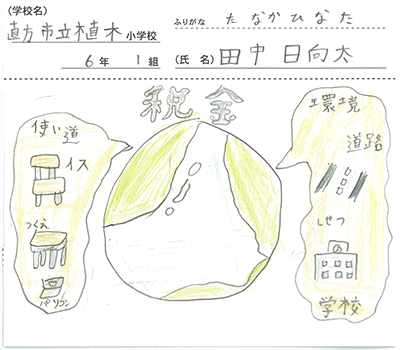 (学校名)
直方市立植木小学校
6年 1組
ふりがな たなかひなた
(氏 名) 田中 日向太
税金
使い道
イス
つくえ
パソコン
環境
道路
しせつ
学校